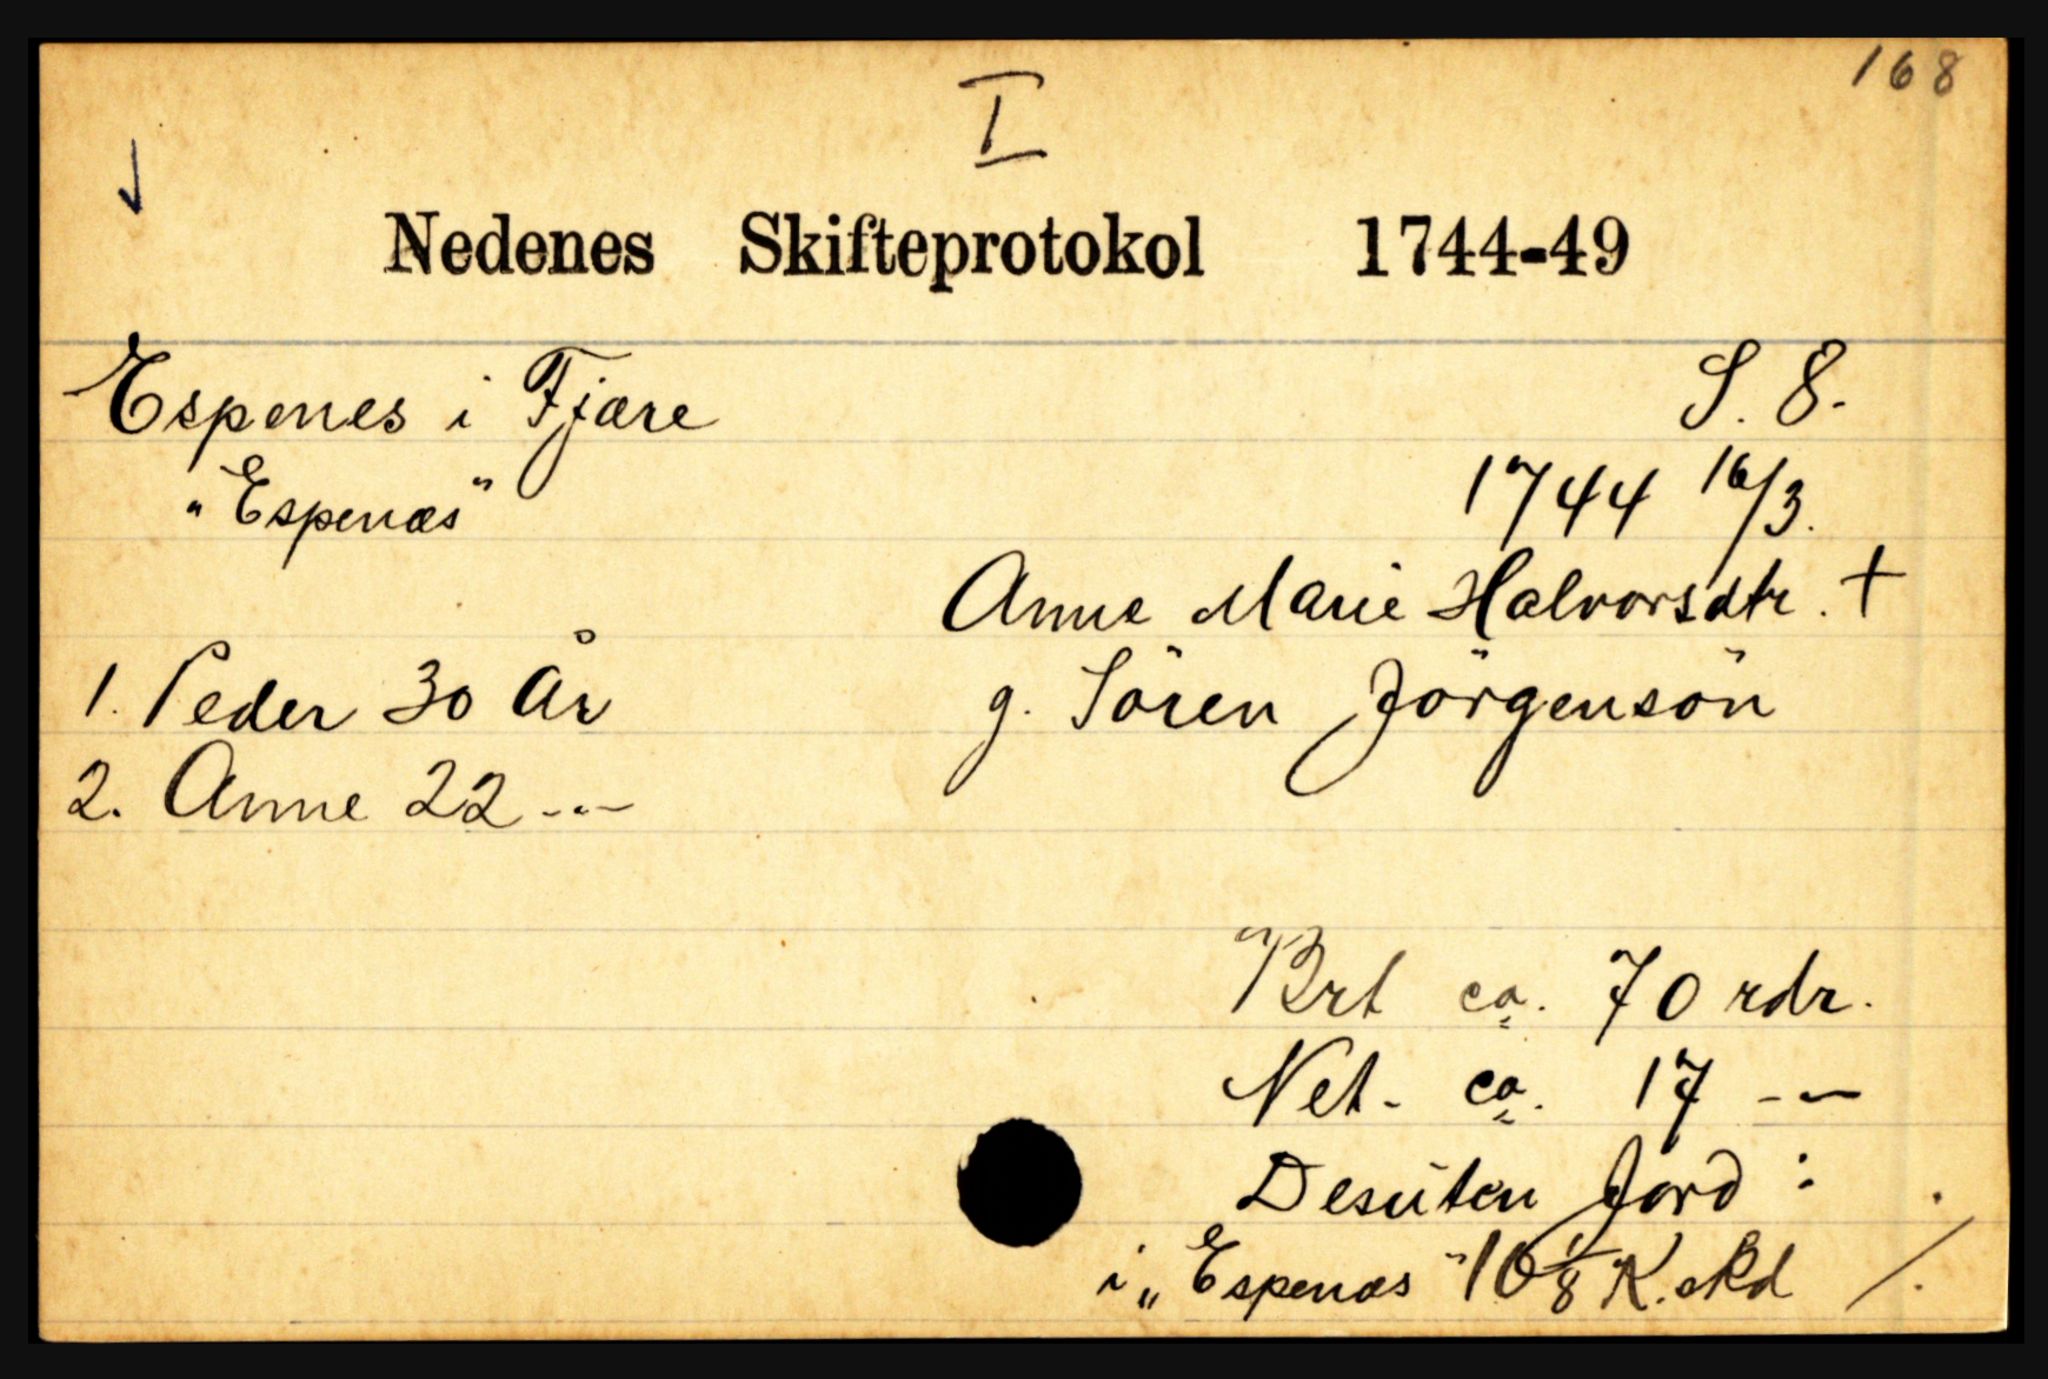 168
I
Nedenes Skifteprotokol 1744-49
Espenes i Fjære S. 8.
"Espenæs" 1744 16/3.
Anne Marie Halvorsdtr. †
1. Peder 30 År g. Sören Jörgensön
2. Anne 22 -"-
Brt ca. 70 rdr.
Net. ca. 17 -"-
Desuten Jord :
i „Espenæs" 10 1/8 K. skd ./.